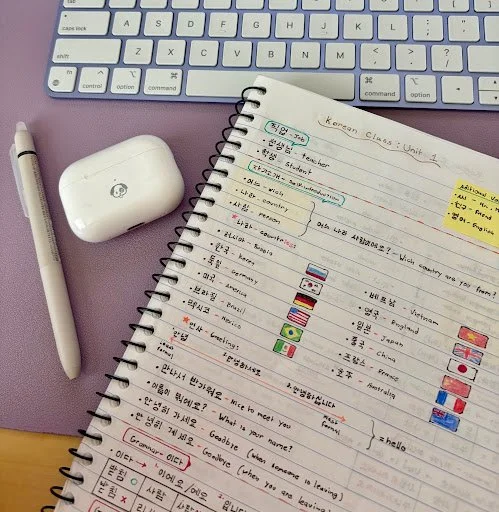 Korean Class : Unit 1
직업 - Job
선생님 - teacher
학생 - Student
자기소개 - Self-introduction
어느 - Which
나라 - country
사람 - person
어느 나라 사람이에요? - Which country are you from?
나라 - countries
러시아 - Russia
한국 - Korea
독일 - Germany
미국 - America
브라질 - Brazil
멕시코 - Mexico
베트남 - Vietnam
영국 - England
일본 - Japan
중국 - China
프랑스 - France
호주 - Australia
인사 - Greetings
안녕
1. 안녕하세요
2. 안녕하십니다
most formal
= hello
만나서 반가워요 - Nice to meet you
이름이 뭐예요? - What is your name?
안녕히 가세요 - Goodbye (when someone is leaving)
안녕히 계세요 - Goodbye (when you are leaving)
Grammar - 이다
이다 → 이에요/예요
받침 O
사람
받침 X
친구 - Friend
영어 - English
caps lock
A
S
D
F
G
H
J
K
L
shift
Z
X
C
V
B
N
M
fn
control
option
command
command
option